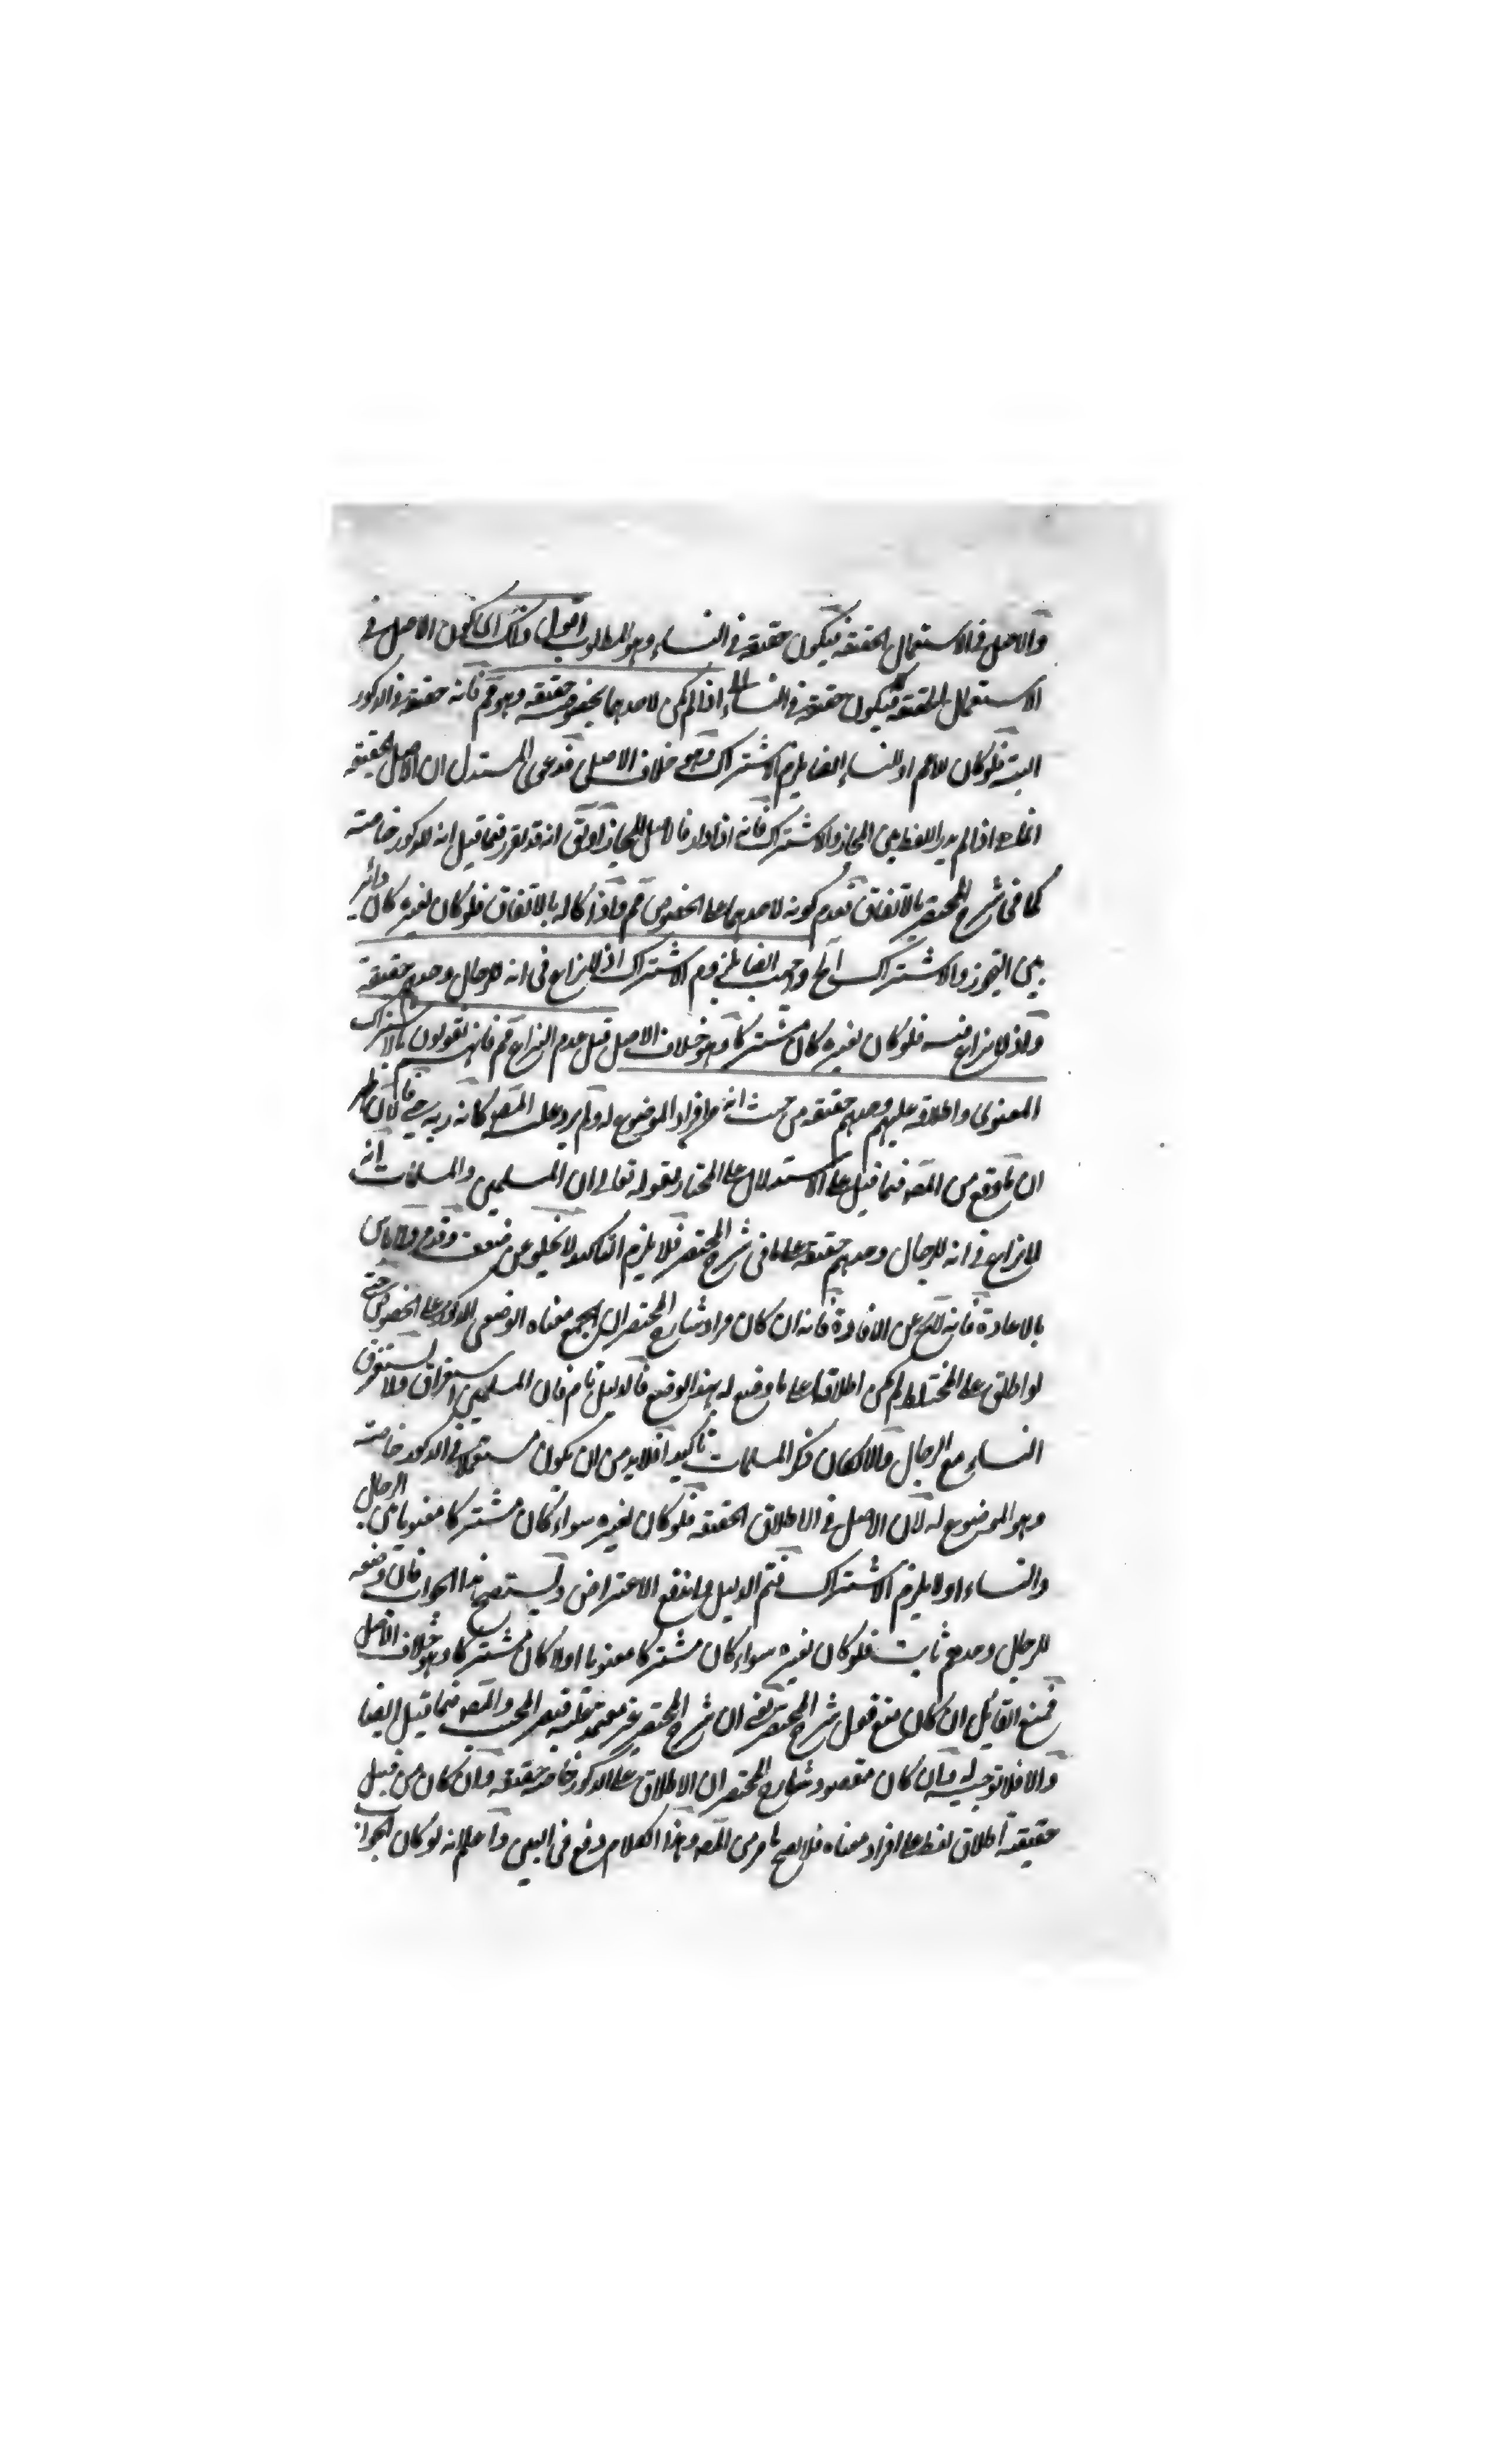 والاصل فى الاستعمال الحقيقة فيكون حقيقة فى النساء وهو المطلوب اقول ذلك اى كون الاصل فى
الاستعمال الحقيقة فيكون حقيقة فى النساء اذا لم يكن لاحدهما بخصوصه حقيقة وهو مم فانه حقيقة فى الذكور
البتة فلو كان للاعم او النساء ايضا يلزم الاشتراك وهو خلاف الاصل فدعوى المستدل ان الاصل الحقيقة
انما اذا لم يدر اللفظ بين المجاز والاشتراك فانه اذا دار فالاصل المجاز انه قد تقرر فما قيل انه للذكور خاصة
كما فى شرح المختصر بالاتفاق فعدم كونه لاحدهما على الخصوص مم واذا كان له بالاتفاق فلو كان لغيره كان دائر
بين التجوز والاشتراك الخ ايضا بلزوم الاشتراك اذ لا نزاع فى انه للرجال وحدهم حقيقة
واذ لا نزاع فيه فلو كان لغيره كان مشتركا وهو خلاف الاصل قيل عدم النزاع مم فانهم يقولون بالاشتراك
المعنوى واطلاقه عليهم وحدهم حقيقة من حيث انه من افراد الموضوع له ولم يرد على المص
ان ما وقع من المص فيما قيل على الاستدلال على المختار بقوله تعالى ان المسلمين والمسلمات انه
لا نزاع فى انه للرجال وحدهم حقيقة على ما فى شرح المختصر فلا يلزم التأكيد لا يخلو عن ضعف وقد مر ولا باس
بالاعادة فانه لا يخ عن الافادة فانه ان كان مراد شارح المختصر ان الجمع معناه الوضعى الذكور على الخصوص حتى
لو اطلق على المختلط لم يكن اطلاقا على ما وضع له بهذا الوضع فالدليل تام فان المسلمين استغراق ولا يستغرق
النساء مع الرجال والا لكان ذكر المسلمات تاكيدا فلا بد من ان يكون مستعملا فى الذكور خاصة
وهو الموضوع له لان الاصل فى الاطلاق الحقيقة فلو كان لغيره سواء كان مشتركا معنويا بين الرجال
والنساء اولا يلزم الاشتراك فتم الدليل واندفع الاعتراض ولا يستصح هذا الجواب فان وضعه
للرجال وحدهم ثابت فلو كان لغيره سواء كان مشتركا معنويا اولا كان مشتركا وهو خلاف الاصل
فمنع القائل ان كان منع قول شرح المختصر يعنى ان شرح المختصر غير معتمد عليه فيضر المجيب والمص فيما قيل ايضا
والا فلا توجيه له وان كان مقصود شارح المختصر ان الاطلاق على الذكور خاصة حقيقة وان كان من قبيل
حقيقة اطلاق لفظ على افراد معناه فلا يصح ما مر من المص وهذا الكلام وقع فى البين واعلم انه لو كان الجواب